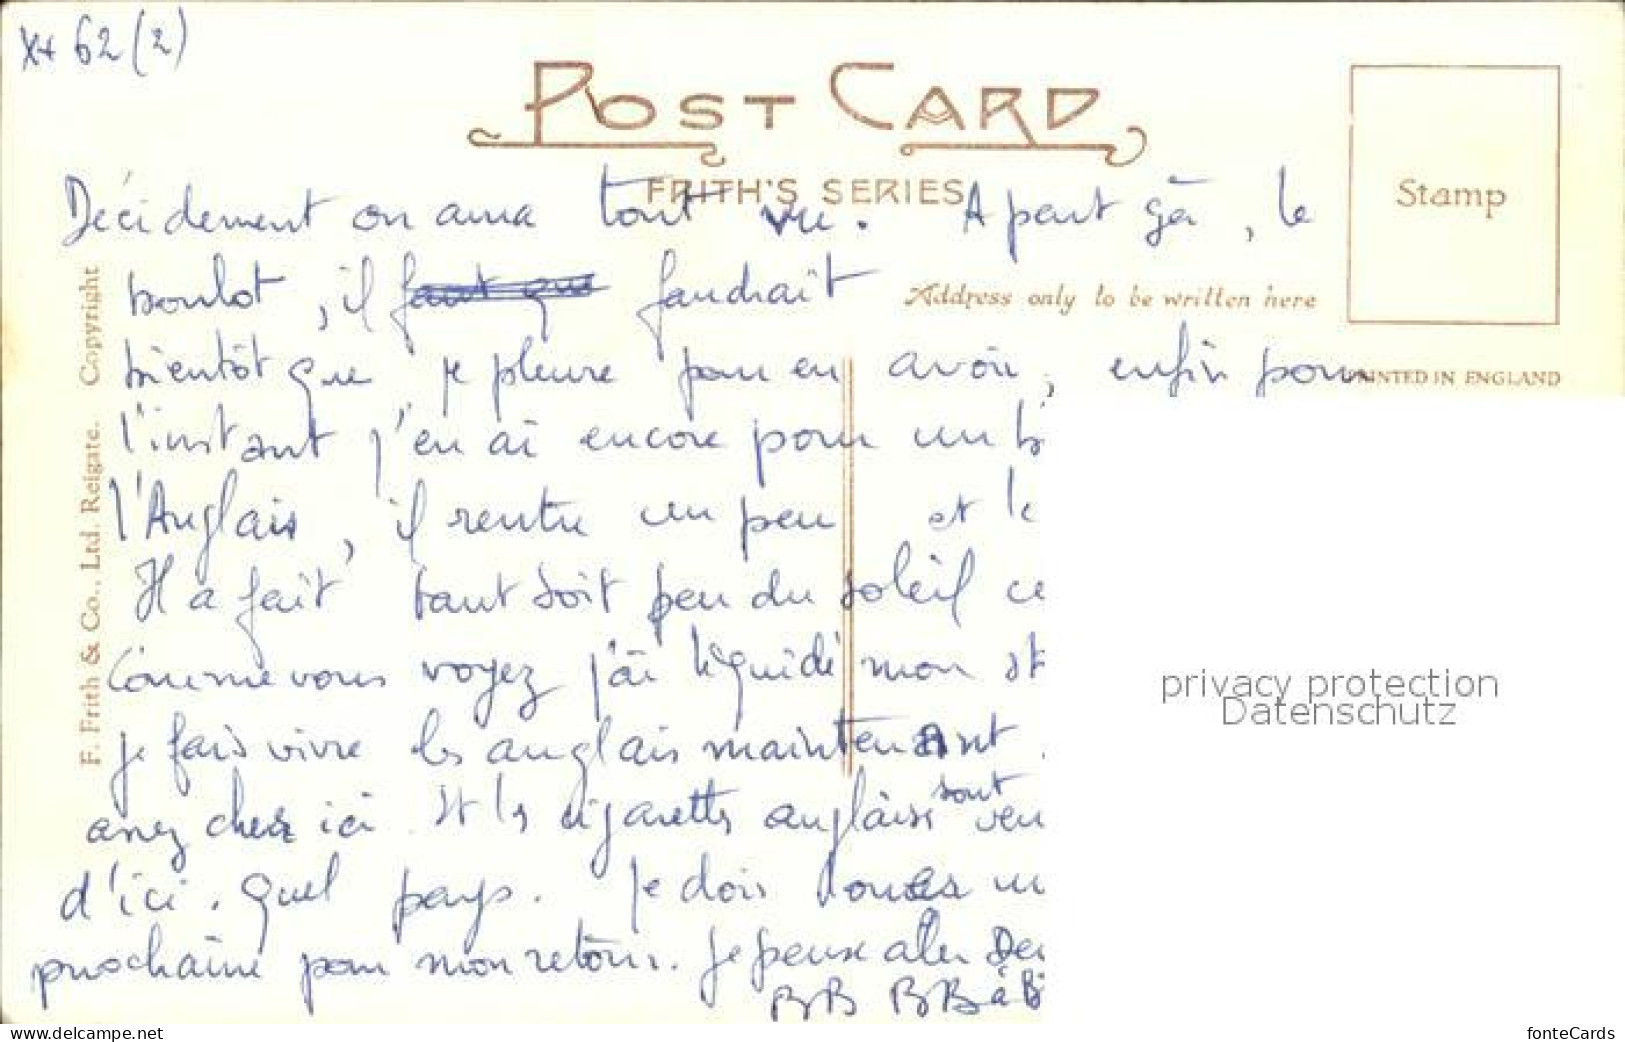 X+ 62 (2)
POST CARD
FRITH'S SERIES
Stamp
Address only to be written here
PRINTED IN ENGLAND
F. Frith & Co., Ltd. Reigate. Copyright
Décidement on aura tout vu. A part ça, le
boulot, il faut que faudrait
bientôt que je pleure pour en avoir, enfin pour
l'instant j'en ai encore pour un
l'Anglais, il rentre un peu et le
Il a fait tant soit peu du soleil ce
Comme vous voyez j'ai liquidé mon st
je fais vivre les anglais maintenant.
assez cher ici. Et les cigarettes anglaises sont ven
d'ici. Quel pays. Je dois
prochaine pour mon retour. Je peux aller
BB BB à B
privacy protection
Datenschutz
www.delcampe.net
fonteCards